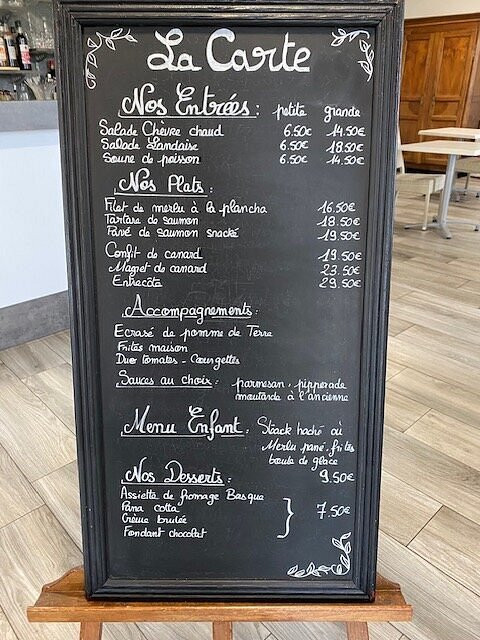 La Carte
Nos Entrées : petite grande
Salade Chèvre chaud 6.50€ 14.50€
Salade Landaise 6.50€ 18.50€
Soupe de poisson 6.50€ 14.50€
Nos Plats :
Filet de merlu à la plancha 16.50€
Tartare de saumon 18.50€
Pavé de saumon snacké 19.50€
Confit de canard 19.50€
Magret de canard 23.50€
Entrecôte 29.50€
Accompagnements :
Ecrasé de pomme de Terre
Frites maison
Duo tomates - Courgettes
Sauces au choix : parmesan, pipperade
moutarde à l'ancienne
Menu Enfant : Steack haché où
Merlu pané, frites
boule de glace
9.50€
Nos Desserts :
Assiette de fromage Basque
Pana cotta
Crème brulée 7.50€
Fondant chocolat